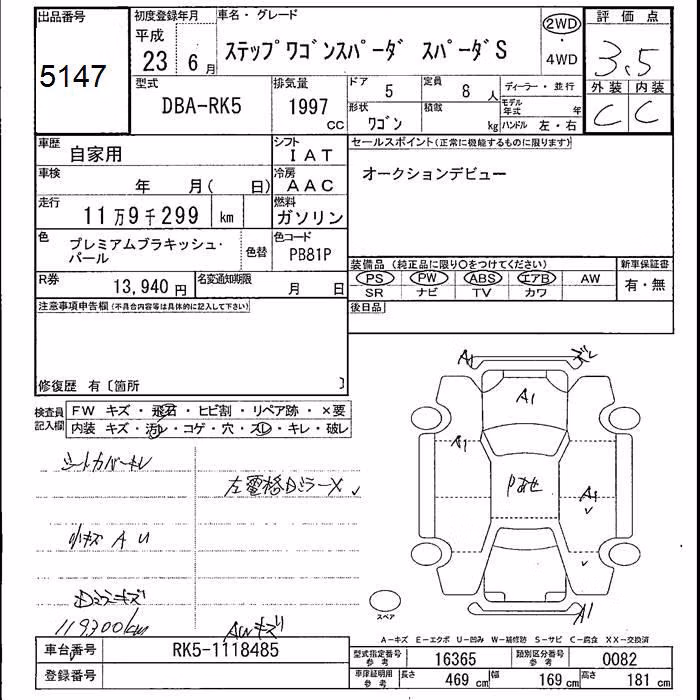 出品番号
5147
初度登録年月
平成
23 6月
車名・グレード
ステップワゴンスパーダ スパーダS
2WD
・
4WD
評価点
3.5
外装 内装
C C
型式
DBA-RK5
排気量
1997
CC
ドア
5
定員
8 人
形状
ワゴン
積載
kg
ディーラー・並行
モデル
年式 年
ハンドル 左・右
車歴
自家用
シフト
IAT
車検
年 月( 日)
冷房
AAC
走行
11万9千299 km
燃料
ガソリン
色
プレミアムブラキッシュ・
パール
色替
色コード
PB81P
R券
13,940円
名変通知期限
月 日
セールスポイント(正常に機能するものに限ります)
オークションデビュー
装備品 (純正品に限り〇をつけてください)
PS PW ABS エアB AW
SR ナビ TV カワ
新車保証書
有・無
後日品
注意事項申告欄(不具合内容等は具体的に記入して下さい)
修復歴 有〔箇所 〕
検査員
記入欄
FW キズ・飛石・ヒビ割・リペア跡・×要
内装 キズ・汚レ・コゲ・穴・スレ・キレ・破レ
シートカバーキレ
左電格Dミラー✕
小キズ A U
Dミラーキズ
119300km
AWキズ
A1
A1
A1
Pあせ
A1
A1
スペア
A-キズ E-エクボ U-凹み W-補修跡 S-サビ C-腐食 XX-交換済
車台番号
RK5-1118485
登録番号
型式指定番号
参考
16365
類別区分番号
参考
0082
車庫証明用
参考
長さ
469 cm
幅
169 cm
高さ
181 cm